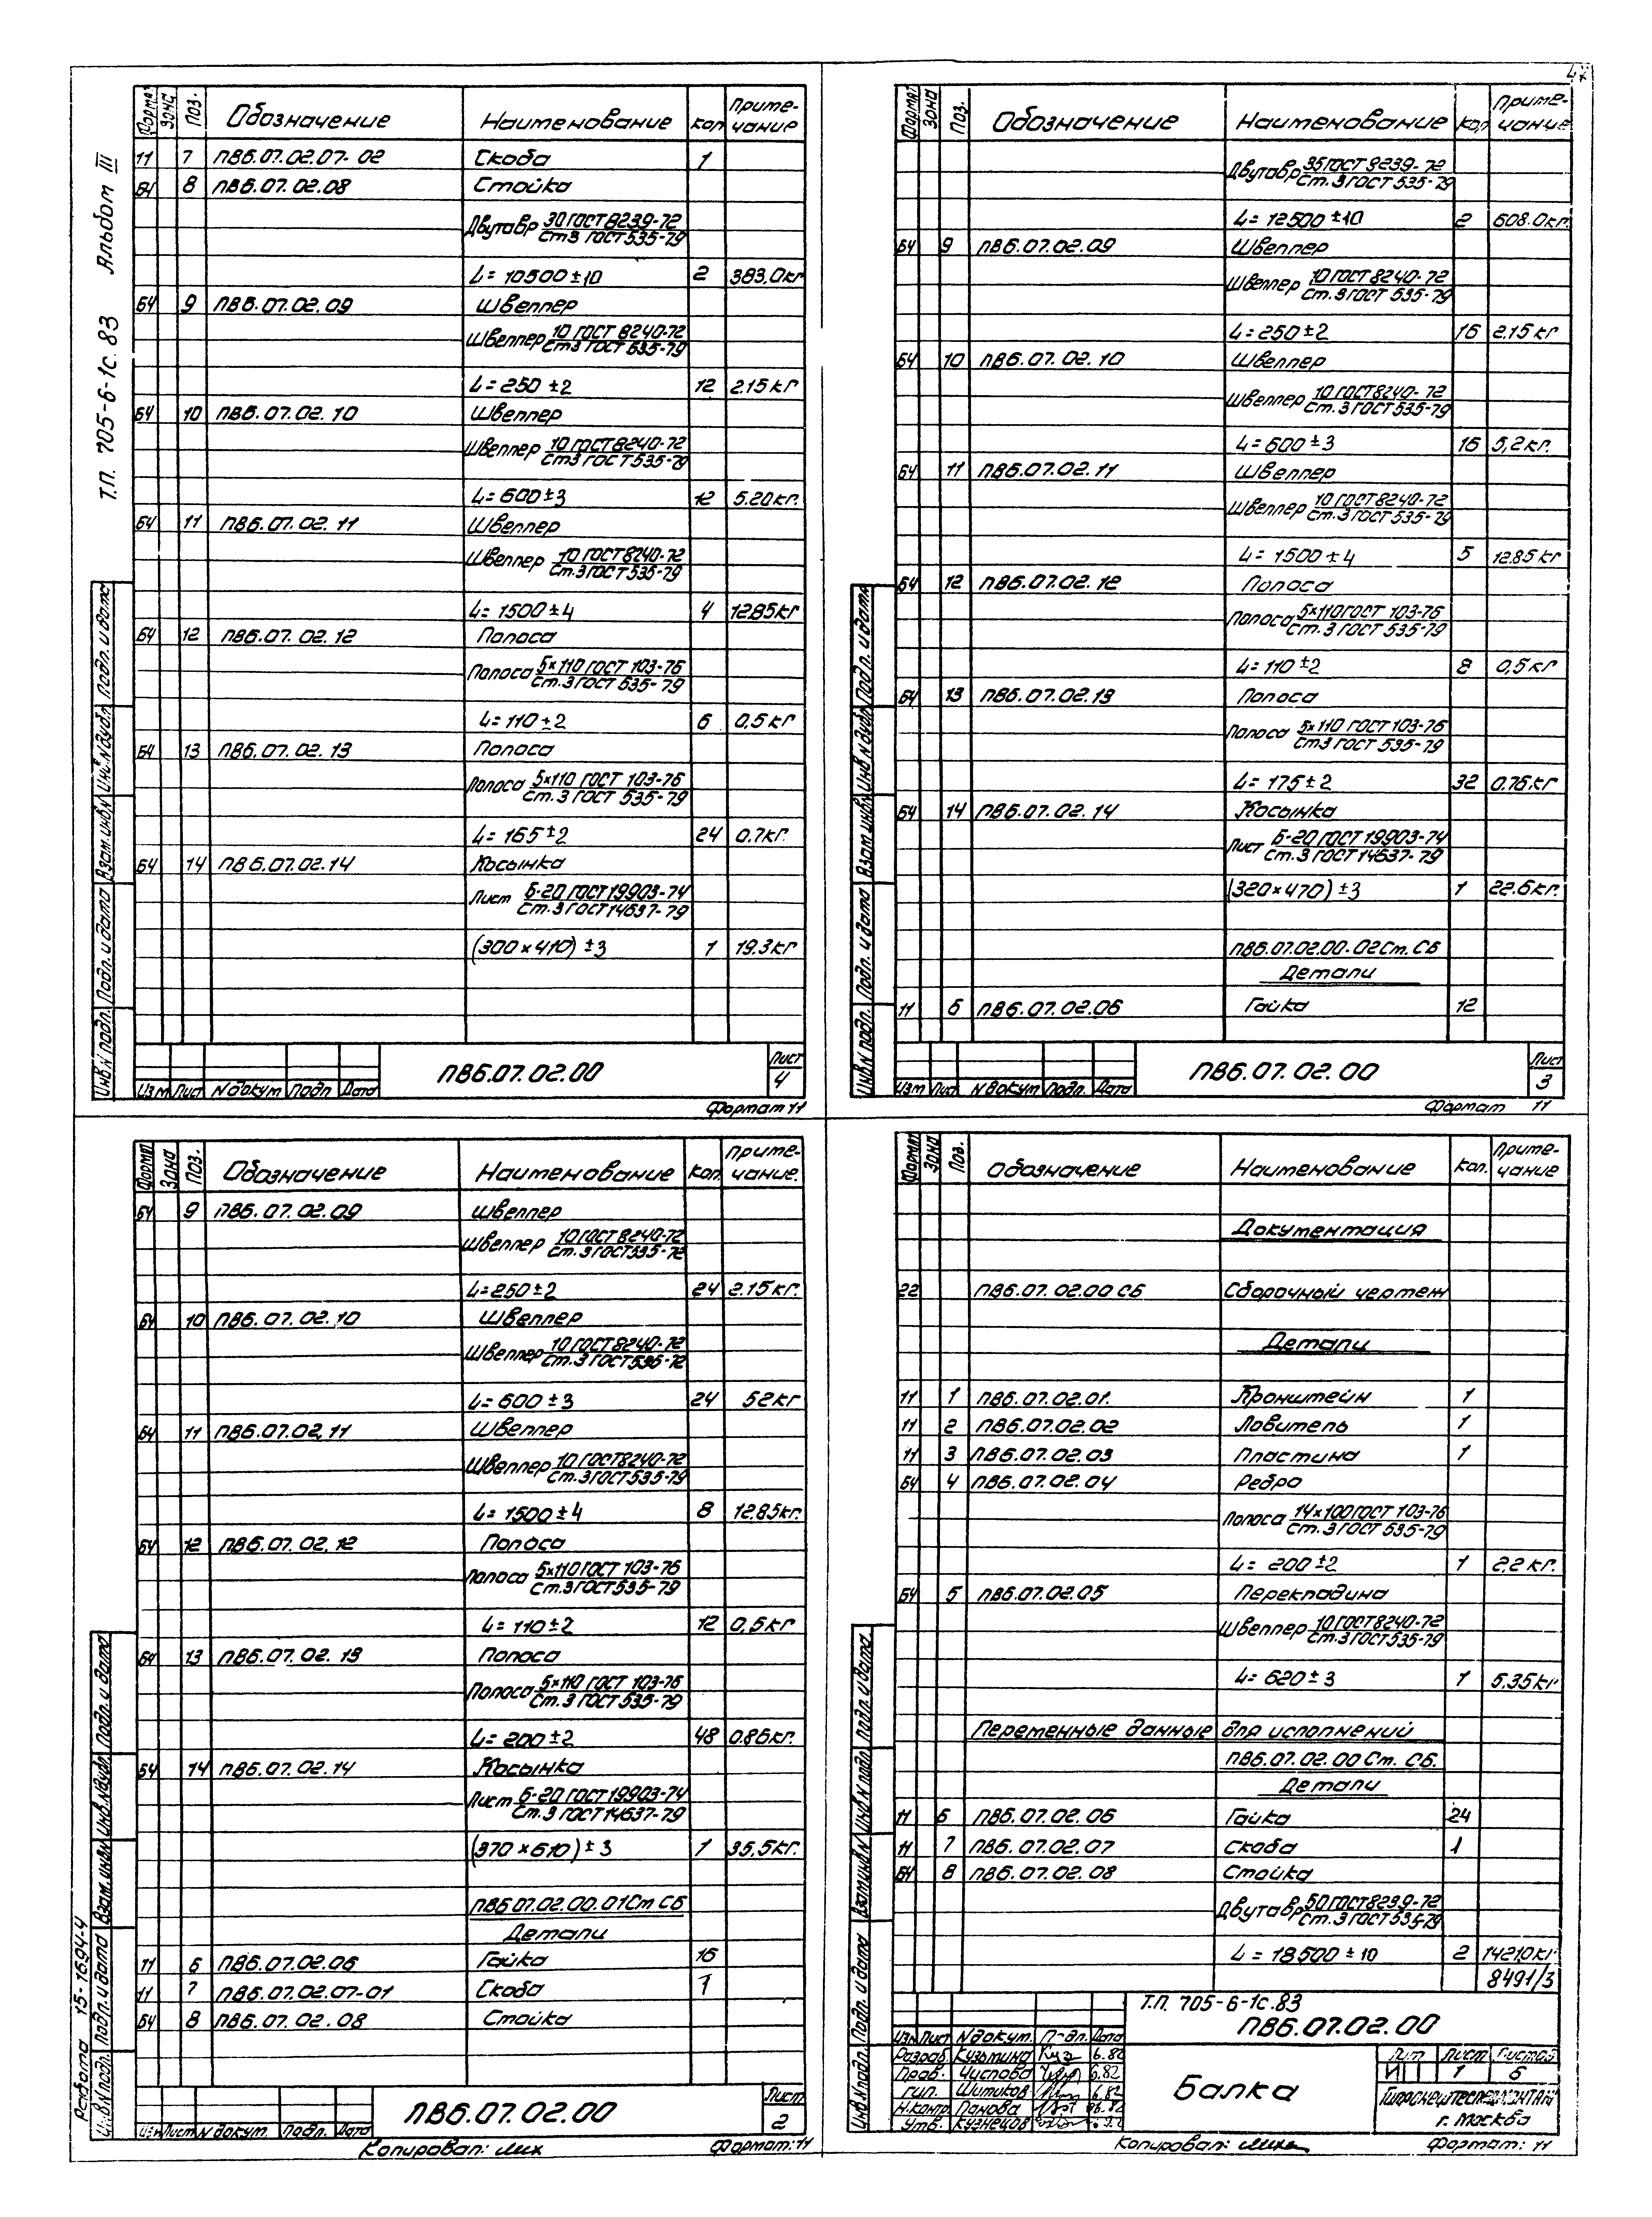 47
Т.П. 705-6-1с.83 Альбом III
Формат Зона Поз. Обозначение Наименование Кол. Примечание
11 7 ПВ6.07.02.07-02 Скоба 1
БЧ 8 ПВ6.07.02.08 Стойка
Двутавр 30 ГОСТ 8239-72
Ст3 ГОСТ 535-79
L=10500±10 2 383,0кг
БЧ 9 ПВ6.07.02.09 Швеллер
Швеллер 10 ГОСТ 8240-72
Ст3 ГОСТ 535-79
L=250±2 12 2.15кг
БЧ 10 ПВ6.07.02.10 Швеллер
Швеллер 10 ГОСТ 8240-72
Ст3 ГОСТ 535-79
L=600±3 12 5.20кг.
БЧ 11 ПВ6.07.02.11 Швеллер
Швеллер 10 ГОСТ 8240-72
Ст.3 ГОСТ 535-79
L=1500±4 4 12.85кг
БЧ 12 ПВ6.07.02.12 Полоса
Полоса 5×110 ГОСТ 103-76
Ст.3 ГОСТ 535-79
L=110±2 6 0,5кг
БЧ 13 ПВ6.07.02.13 Полоса
Полоса 5×110 ГОСТ 103-76
Ст.3 ГОСТ 535-79
L=165±2 24 0.7кг.
БЧ 14 ПВ6.07.02.14 Косынка
Лист Б-20 ГОСТ 19903-74
Ст.3 ГОСТ 14637-79
(300×410)±3 1 19.3кг
Инв.N подл. Подп. и дата Взам.инв.N Инв.N дубл. Подп. и дата
Изм Лист N докум Подп Дата
ПВ6.07.02.00
Лист
4
Формат 11
Формат Зона Поз. Обозначение Наименование Кол Примечание
Двутавр 36 ГОСТ 8239-72
Ст.3 ГОСТ 535-79
L=12500±10 2 608.0кг.
БЧ 9 ПВ6.07.02.09 Швеллер
Швеллер 10 ГОСТ 8240-72
Ст.3 ГОСТ 535-79
L=250±2 16 2.15кг
БЧ 10 ПВ6.07.02.10 Швеллер
Швеллер 10 ГОСТ 8240-72
Ст.3 ГОСТ 535-79
L=600±3 16 5,2кг.
БЧ 11 ПВ6.07.02.11 Швеллер
Швеллер 10 ГОСТ 8240-72
Ст.3 ГОСТ 535-79
L=1500±4 5 12.85кг
БЧ 12 ПВ6.07.02.12 Полоса
Полоса 5×110 ГОСТ 103-76
Ст.3 ГОСТ 535-79
L=110±2 8 0,5кг
БЧ 13 ПВ6.07.02.13 Полоса
Полоса 5×110 ГОСТ 103-76
Ст3 ГОСТ 535-79
L=175±2 32 0.76кг
БЧ 14 ПВ6.07.02.14 Косынка
Лист Б-20 ГОСТ 19903-74
Ст.3 ГОСТ 14637-79
(320×470)±3 1 22.6кг.
ПВ6.07.02.00-02 Ст.СБ
Детали
11 6 ПВ6.07.02.06 Гайка 12
Инв.N подл. Подп. и дата Взам инв.N Инв.N дубл. Подп. и дата
Изм Лист N докум Подп. Дата
ПВ6.07.02.00
Лист
3
Формат 11
Формат Зона Поз. Обозначение Наименование Кол. Примечание.
БЧ 9 ПВ6.07.02.09 Швеллер
Швеллер 10 ГОСТ 8240-72
Ст.3 ГОСТ 535-72
L=250±2 24 2.15кг.
БЧ 10 ПВ6.07.02.10 Швеллер
Швеллер 10 ГОСТ 8240-72
Ст.3 ГОСТ 535-72
L=600±3 24 52кг
БЧ 11 ПВ6.07.02.11 Швеллер
Швеллер 10 ГОСТ 8240-72
Ст.3 ГОСТ 535-79
L=1500±4 8 12.85кг.
БЧ 12 ПВ6.07.02.12 Полоса
Полоса 5×110 ГОСТ 103-76
Ст.3 ГОСТ 535-79
L=110±2 12 0,5кг
БЧ 13 ПВ6.07.02.13 Полоса
Полоса 5×110 ГОСТ 103-76
Ст.3 ГОСТ 535-79
L=200±2 48 0.86кг.
БЧ 14 ПВ6.07.02.14 Косынка
Лист Б-20 ГОСТ 19903-74
Ст.3 ГОСТ 14637-79
(370×610)±3 1 35,5кг.
ПВ6.07.02.00.01 Ст СБ
Детали
11 6 ПВ6.07.02.06 Гайка 16
11 7 ПВ6.07.02.07-01 Скоба 1
БЧ 8 ПВ6.07.02.08 Стойка
Работа 15-1694-4
Инв.N подл. Подп. и дата Взам.инв.N Инв.N дубл. Подп. и дата
Изм Лист N докум. Подп. Дата
ПВ6.07.02.00
Лист
2
Копировал: Формат: 11
Формат Зона Поз. Обозначение Наименование Кол. Примечание
Документация
22 ПВ6.07.02.00 СБ Сборочный чертеж
Детали
11 1 ПВ6.07.02.01. Кронштейн 1
11 2 ПВ6.07.02.02 Ловитель 1
11 3 ПВ6.07.02.03 Пластина 1
БЧ 4 ПВ6.07.02.04 Ребро
Полоса 14×100 ГОСТ 103-76
Ст.3 ГОСТ 535-79
L=200±2 1 2,2кг.
БЧ 5 ПВ6.07.02.05 Перекладина
Швеллер 10 ГОСТ 8240-72
Ст.3 ГОСТ 535-79
L=620±3 1 5.35кг
Переменные данные для исполнений
ПВ6.07.02.00 Ст. СБ.
Детали
11 6 ПВ6.07.02.06 Гайка 24
11 7 ПВ6.07.02.07 Скоба 1
БЧ 8 ПВ6.07.02.08 Стойка
Двутавр 50 ГОСТ 8239-72
Ст.3 ГОСТ 535-79
L=18500±10 2 1421,0кг
8491/3
Инв.N подл. Подп. и дата Взам инв N Инв.N подл. Подп. и дата
Т.П. 705-6-1с.83
ПВ6.07.02.00
Изм Лист N докум. Подп. Дата
Разраб. Кузьмина 6.82
Пров. Чуслова 6.82
Гип. Шитиков 6.82
Н.контр Панова 06.82
Утв. Кузнецов
Балка
Лит Лист Листов
И 1 5
г. Москва
Копировал: Формат: 11